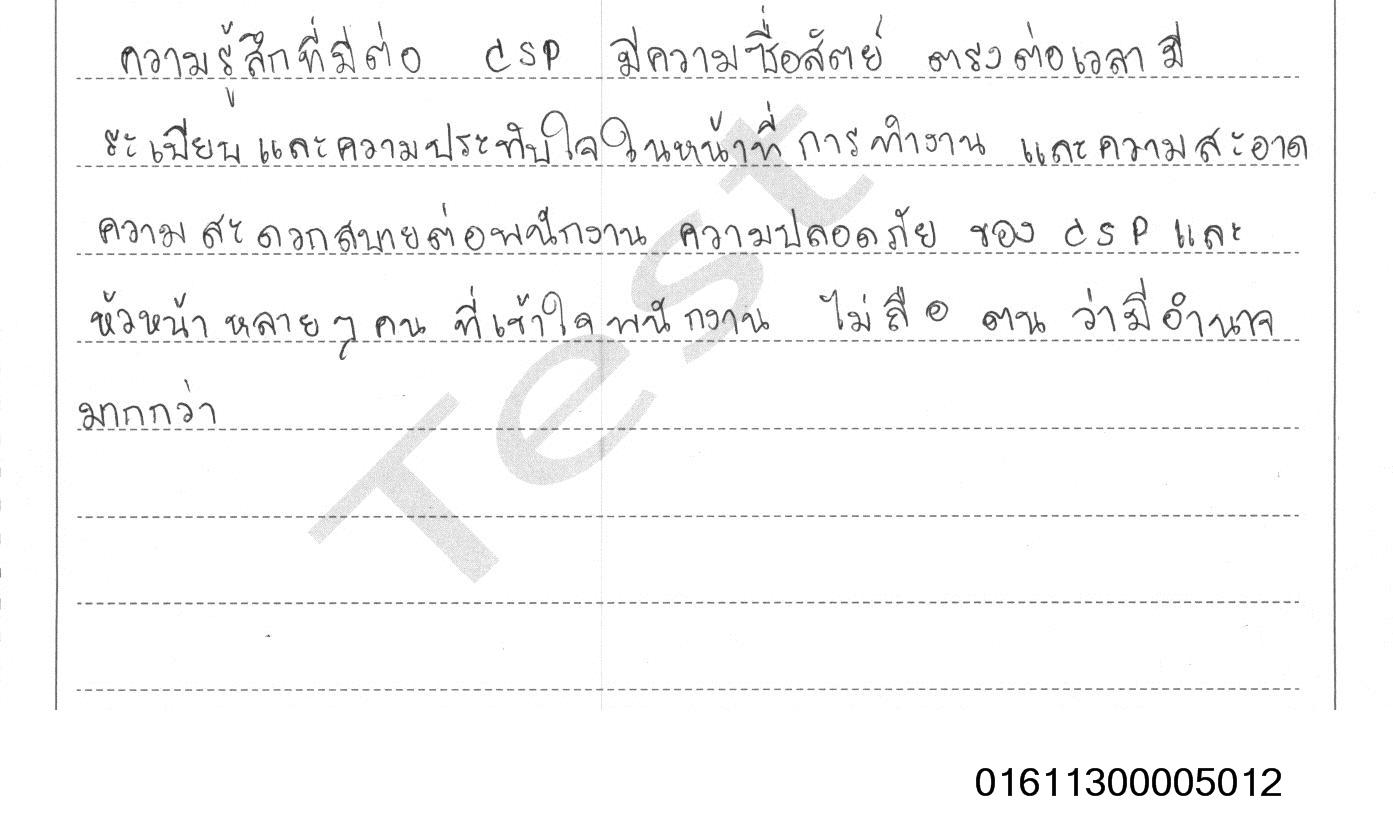 ความรู้สึกที่มีต่อ CSP มีความซื่อสัตย์ ตรงต่อเวลา มี
ระเบียบ และความประทับใจในหน้าที่ การทำงาน และความสะอาด
ความสะดวกสบายต่อพนักงาน ความปลอดภัย ของ CSP และ
หัวหน้า หลายๆ คน ที่เข้าใจพนักงาน ไม่ถือ ตน ว่ามีอำนาจ
มากกว่า
Test
01611300005012